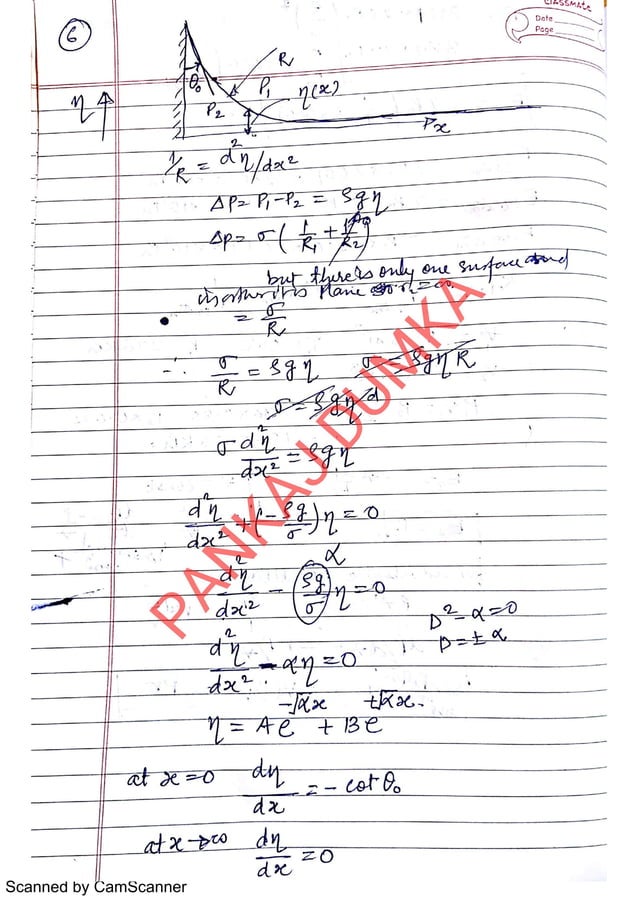 CLASSMATE
Date
Page
6
θ₀
R
P₁
η(x)
η ↑
P₂
x
1/R = d²η/dx²
ΔP = P₁ - P₂ = ρgη
Δp = σ(1/R₁ + 1/R₂)
but there is only one surface and
plane = ∞
= σ/R
∴ σ/R = ρgη σ = ρgηR
σ = ρgηd
σ d²η/dx² = ρgη
d²η/dx² + (-ρg/σ)η = 0
α
d²η/dx² - (ρg/σ)η = 0
D² - α = 0
D = ± α
d²η/dx² - αη = 0
η = A e^(-√α x) + B e^(+√α x).
at x = 0 dη/dx = - cot θ₀
at x → ∞ dη/dx = 0
PANKAJ DUMKA
Scanned by CamScanner